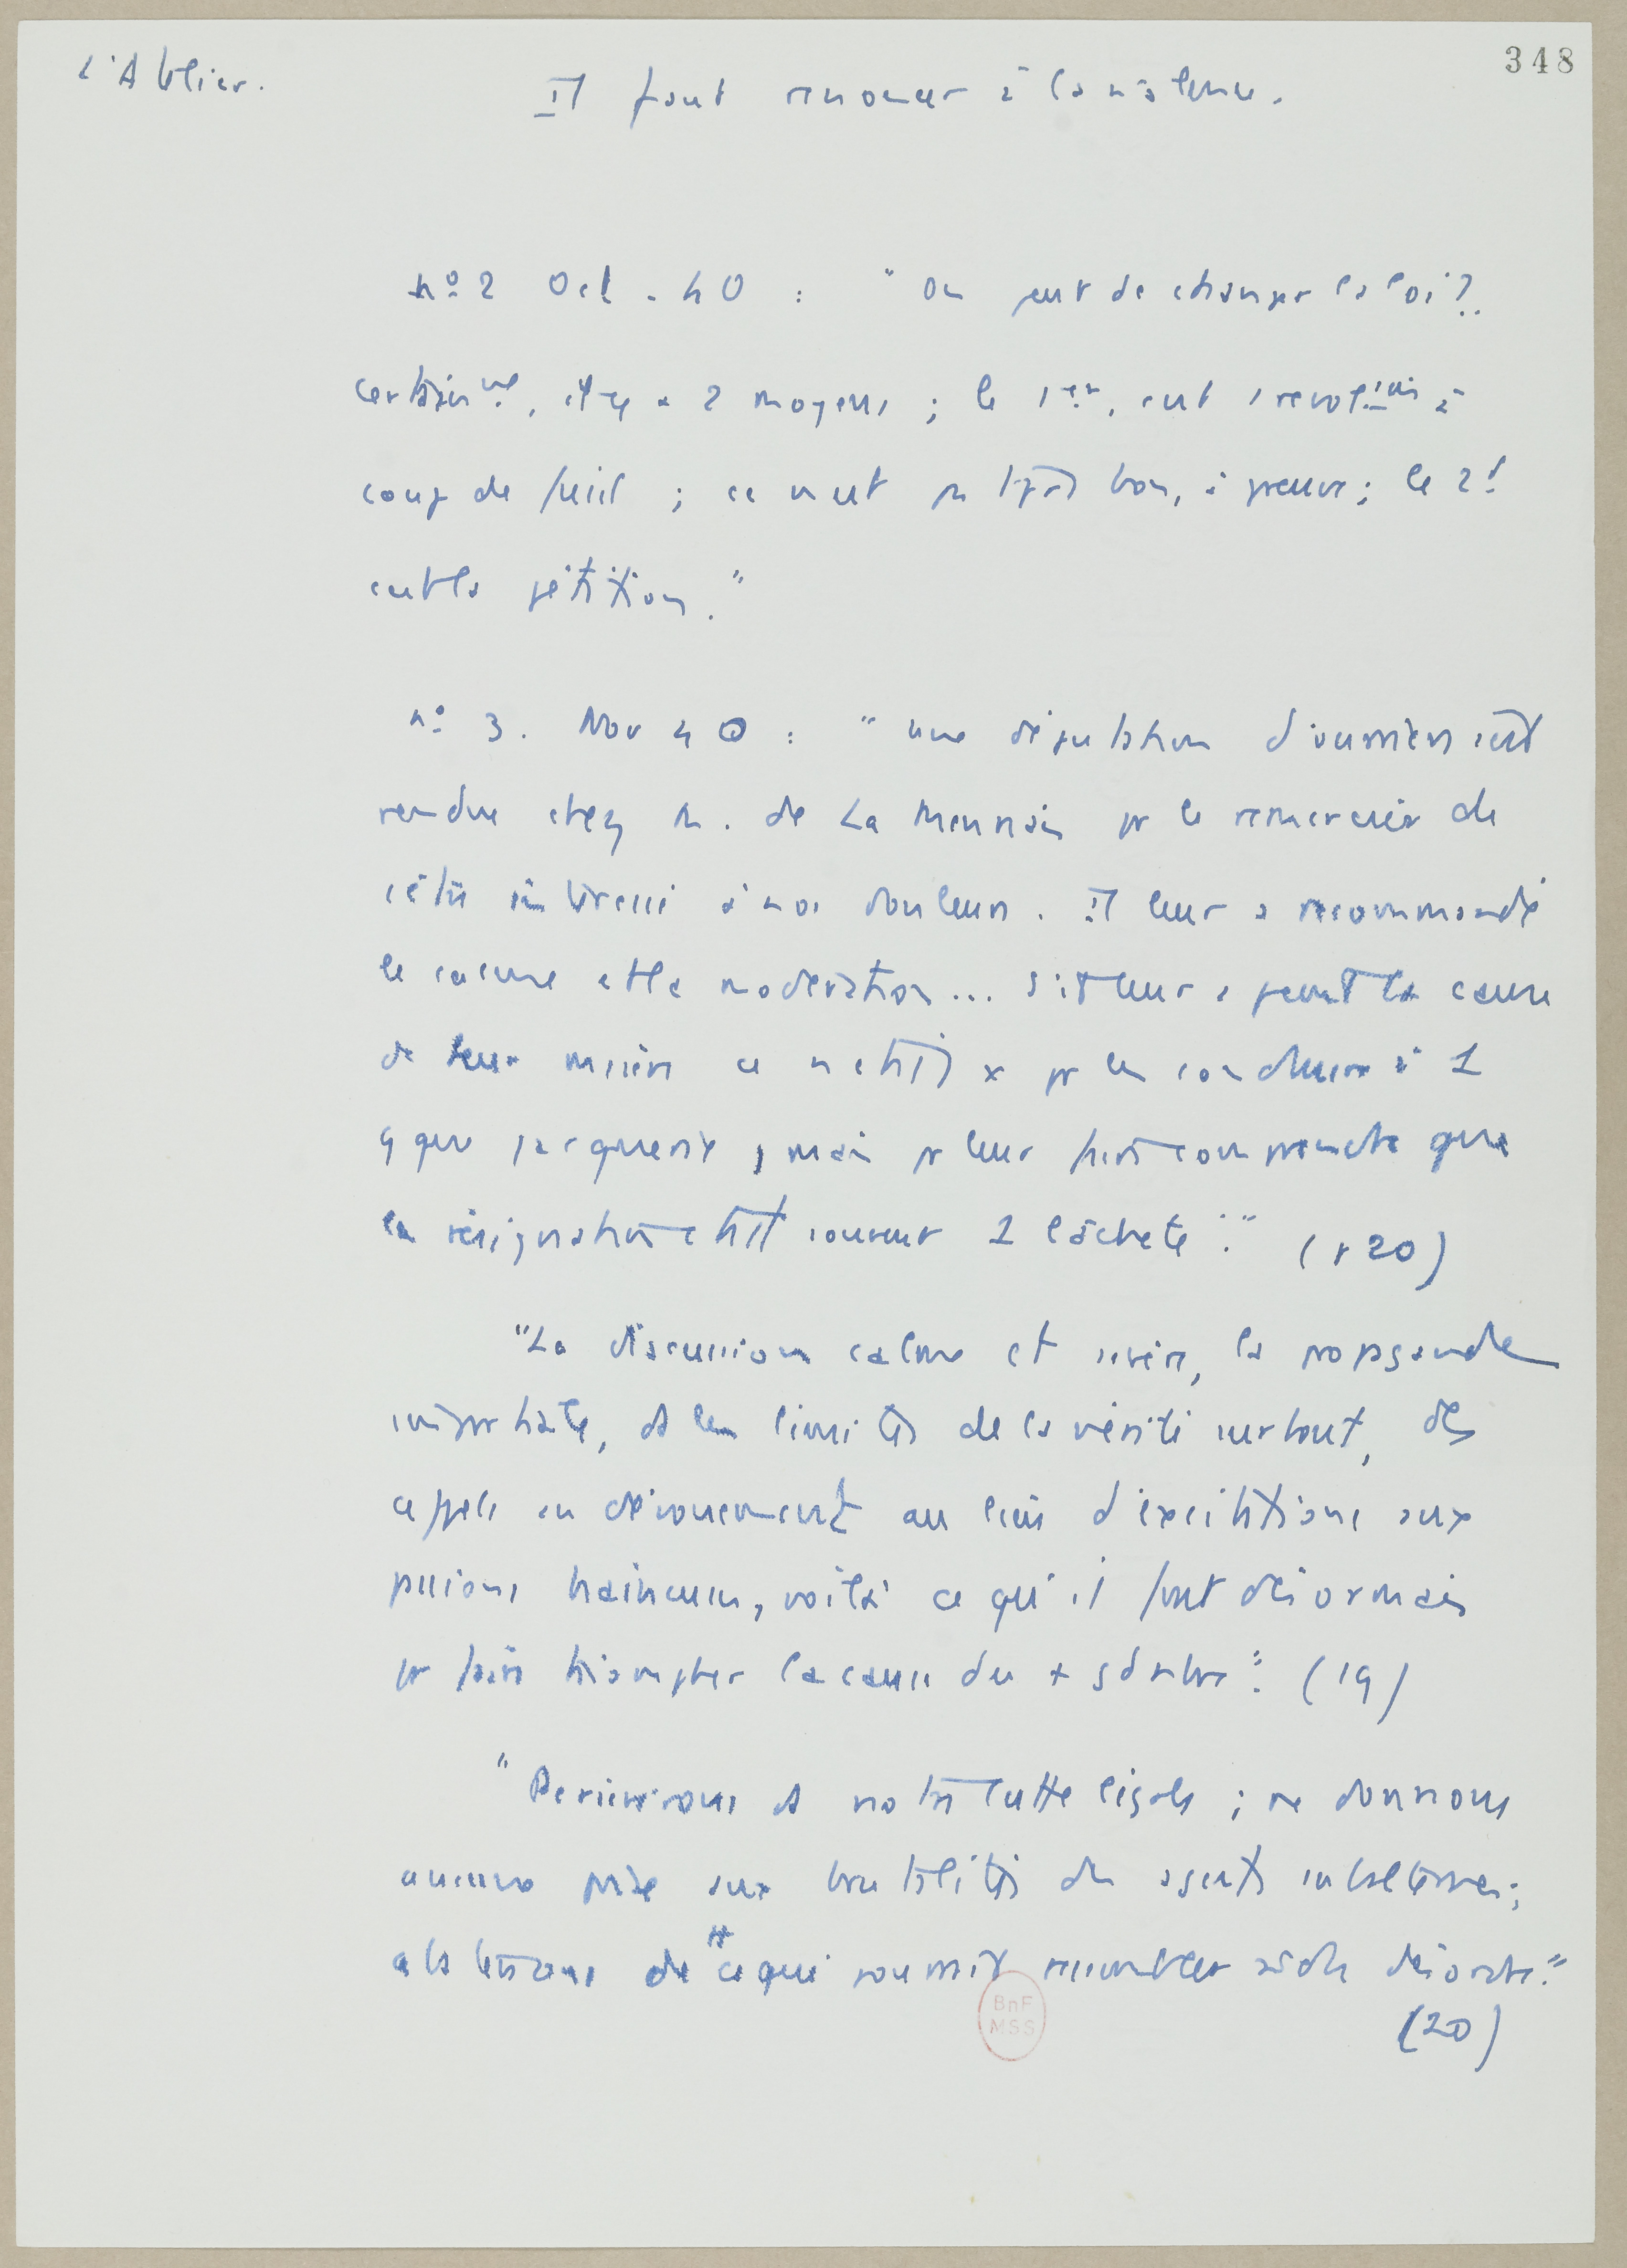 L'Atelier.
348
Il faut renoncer à la violence.
n° 2 Oct. 40 : "On peut de changer la loi ?
certainmt, il y a 2 moyens ; le 1er, est 1 révolution à
coup de fusil ; ce n'est pas tjrs bon, à preuve ; le 2e
est la pétition."
n° 3. Nov 40 : "une députation d'ouvriers s'est
rendue chez M. de La Mennais pr le remercier de
s'être intéressé à nos douleurs. Il leur a recommandé
le calme et la modération... s'il leur a peint la cause
de leur misère ce n'était x pr les conduire à 1
q que jacquerie, mais pr leur faire comprendre que
la résignation était souvent 1 lâcheté." (p 20)
"La discussion calme et sévère, la propagande
impartiale, ds les limites de la vérité surtout, des
appels au dévouement au lieu d'excitations aux
passions haineuses, voilà ce qu'il faut désormais
pr faire triompher la cause du + gd nbre." (19)
"Persévérons ds notre lutte légale ; ne donnons
aucune prise aux brutalités des agents subalternes ;
abstenons de tt ce qui pourrait ressembler à du désordre."
(20)
BnF
MSS